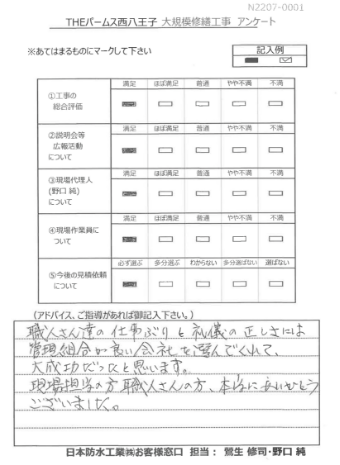 N2207-0001
THEパームス西八王子 大規模修繕工事 アンケート
※あてはまるものにマークして下さい
記入例
満足 ほぼ満足 普通 やや不満 不満
①工事の
総合評価
満足 ほぼ満足 普通 やや不満 不満
②説明会等
広報活動
について
満足 ほぼ満足 普通 やや不満 不満
③現場代理人
(野口 純)
について
満足 ほぼ満足 普通 やや不満 不満
④現場作業員に
ついて
必ず選ぶ 多分選ぶ わからない 多分選ばない 選ばない
⑤今後の見積依頼
について
(アドバイス、ご指導があれば御記入下さい。)
職人さん達の仕事ぶりと礼儀の正しさには
管理組合が良い会社を選んでくれて、
大成功だったと思います。
現場担当の方職人さんの方、本当に
ございました。
日本防水工業㈱お客様窓口 担当： 鶯生 修司・野口 純